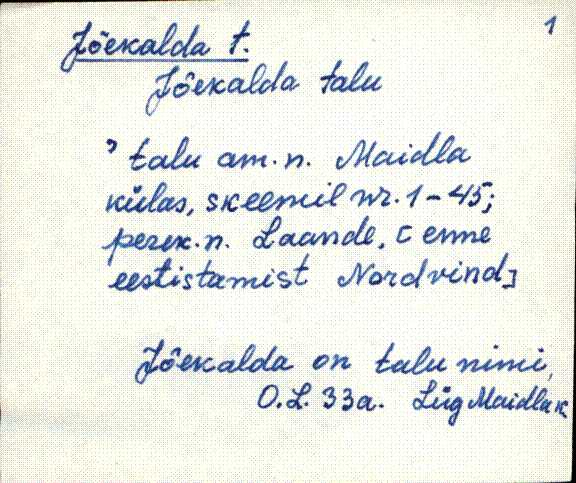 1
Jõekalda t.
Jõekalda talu
" talu am.n. Maidla
külas, skeemil nr. 1-45;
perek.n. Laande, [enne
eestistamist Nordvind]
Jõekalda on talu nimi,
O.L. 33a. Lüg Maidla k.